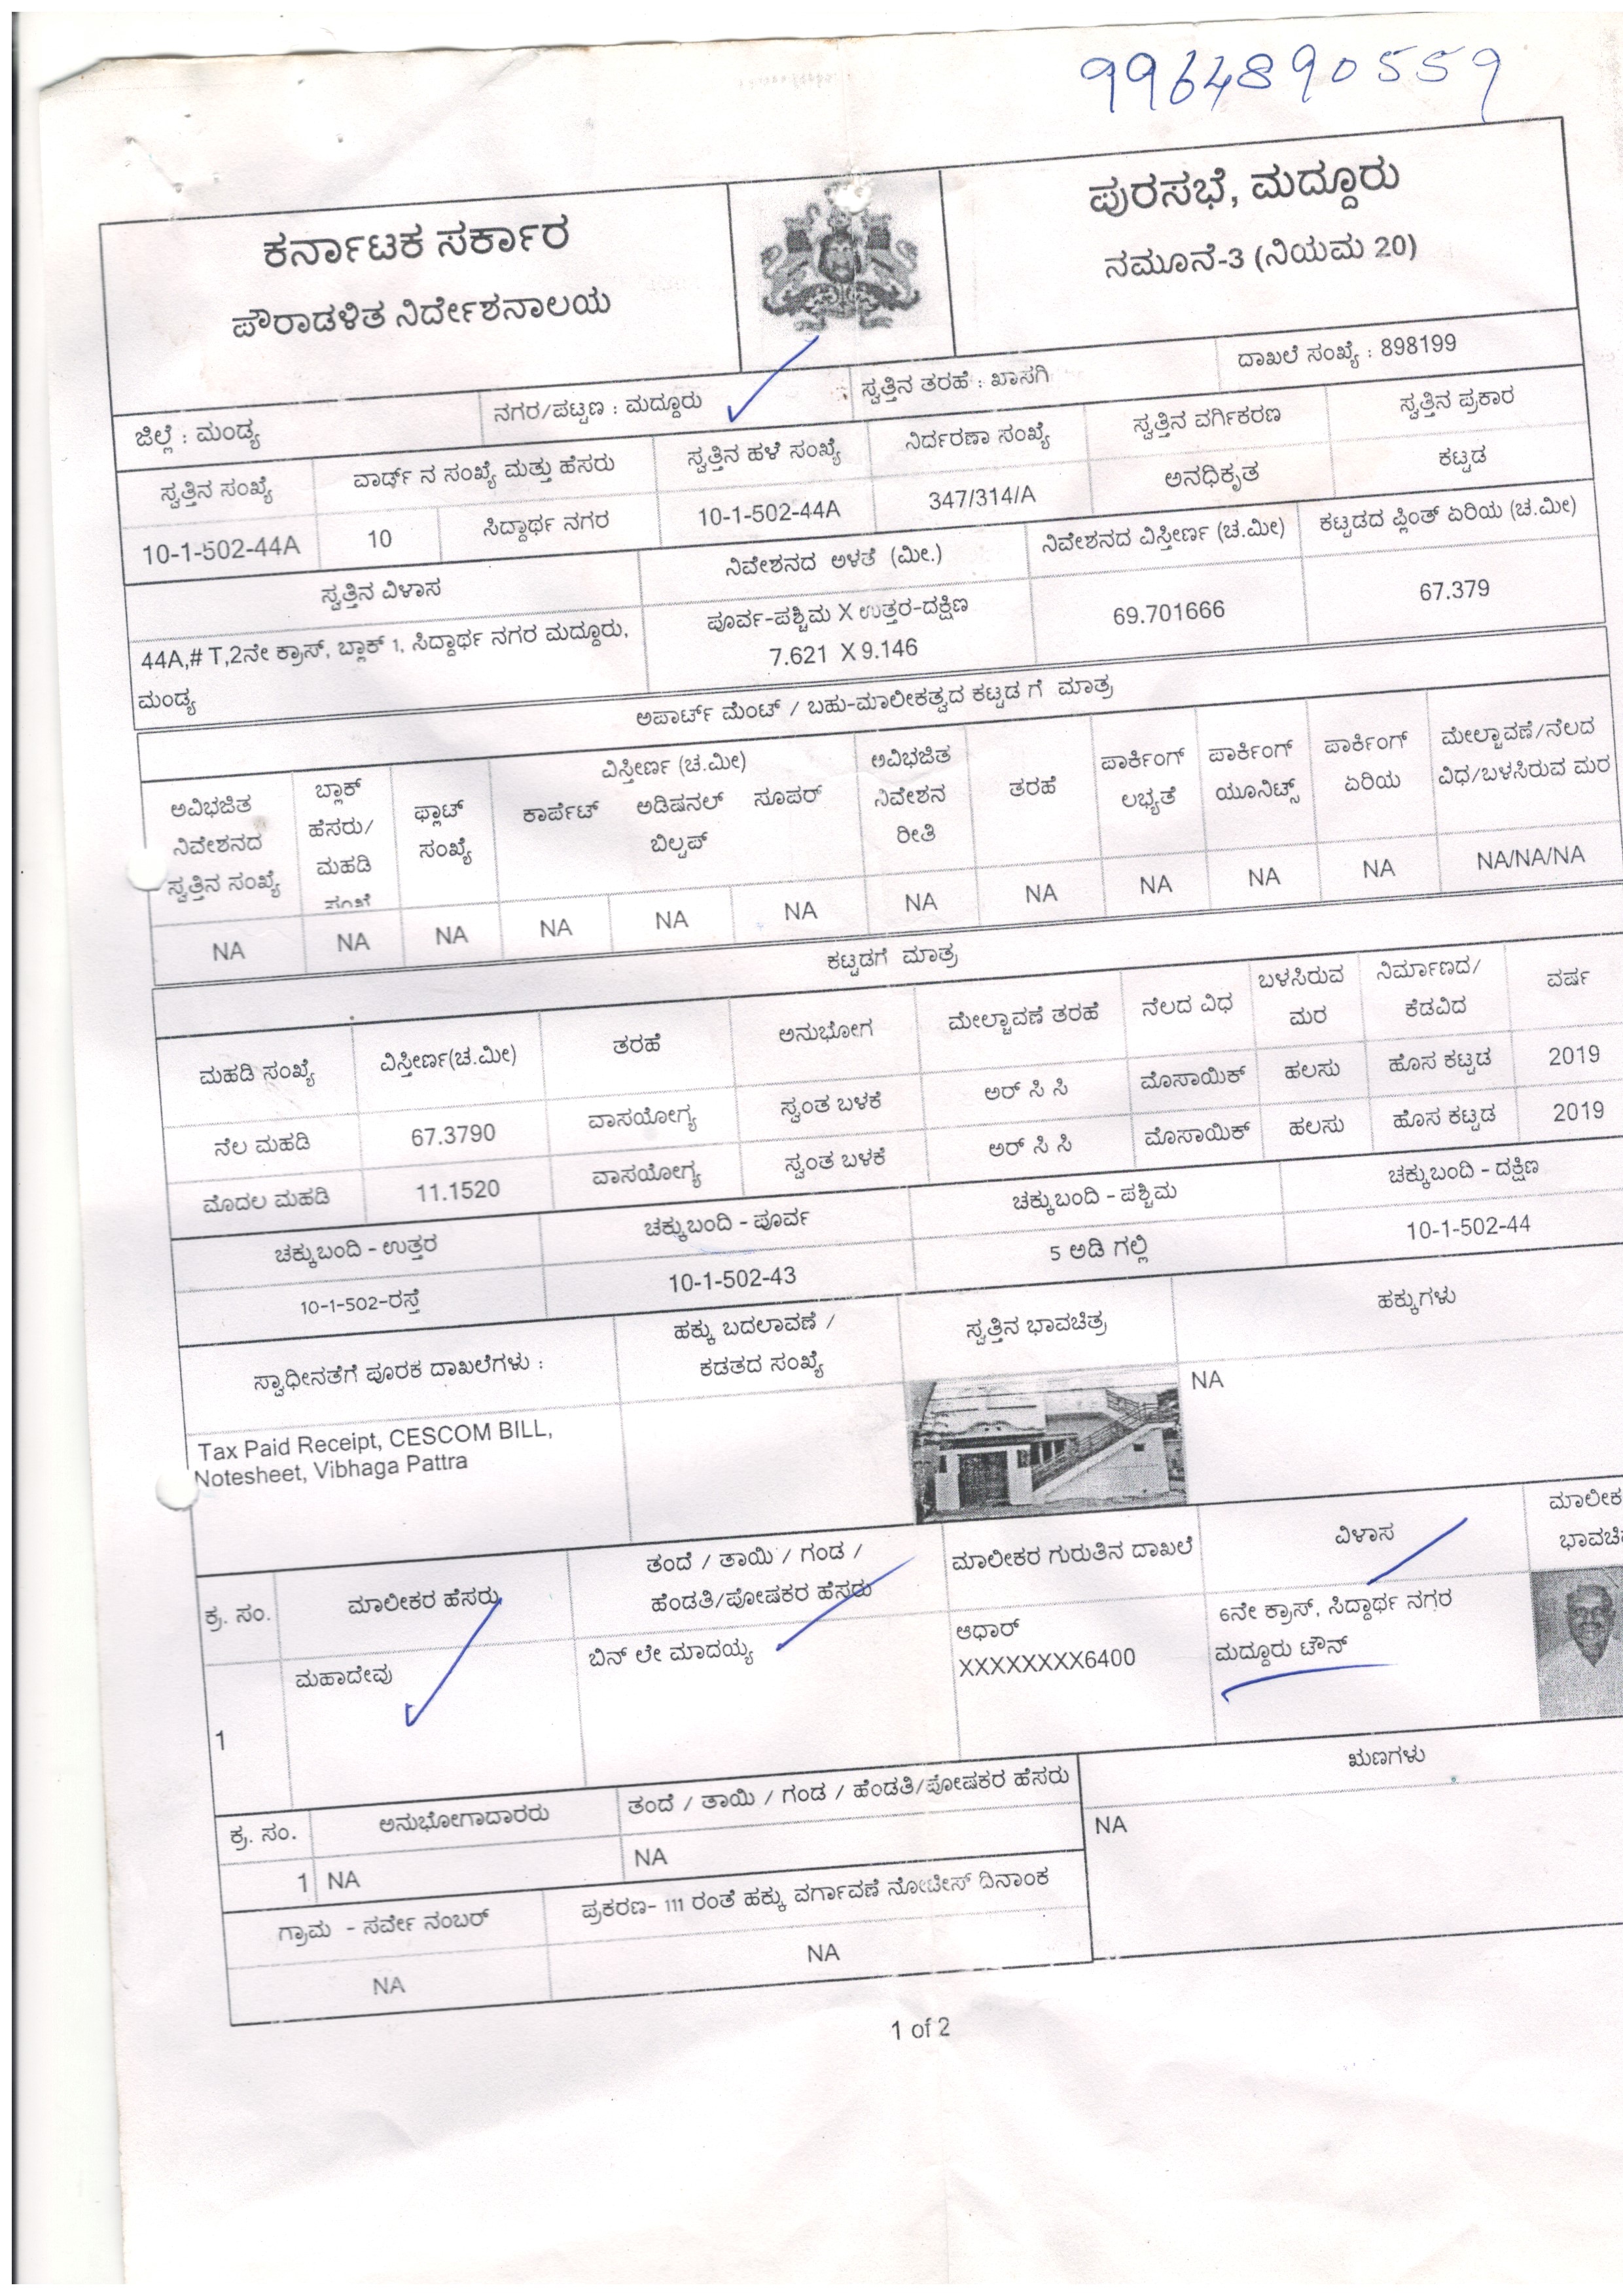 9964890559
ಕರ್ನಾಟಕ ಸರ್ಕಾರ
ಪೌರಾಡಳಿತ ನಿರ್ದೇಶನಾಲಯ
ಪುರಸಭೆ, ಮದ್ದೂರು
ನಮೂನೆ-3 (ನಿಯಮ 20)
ಜಿಲ್ಲೆ : ಮಂಡ್ಯ
ನಗರ/ಪಟ್ಟಣ : ಮದ್ದೂರು
ಸ್ವತ್ತಿನ ತರಹೆ : ಖಾಸಗಿ
ದಾಖಲೆ ಸಂಖ್ಯೆ : 898199
ಸ್ವತ್ತಿನ ಸಂಖ್ಯೆ
ವಾರ್ಡ್ ನ ಸಂಖ್ಯೆ ಮತ್ತು ಹೆಸರು
ಸ್ವತ್ತಿನ ಹಳೆ ಸಂಖ್ಯೆ
ನಿರ್ದರಣಾ ಸಂಖ್ಯೆ
ಸ್ವತ್ತಿನ ವರ್ಗಿಕರಣ
ಸ್ವತ್ತಿನ ಪ್ರಕಾರ
10-1-502-44A
10
ಸಿದ್ದಾರ್ಥ ನಗರ
10-1-502-44A
347/314/A
ಅನಧಿಕೃತ
ಕಟ್ಟಡ
ಸ್ವತ್ತಿನ ವಿಳಾಸ
ನಿವೇಶನದ ಅಳತೆ (ಮೀ.)
ನಿವೇಶನದ ವಿಸ್ತೀರ್ಣ (ಚ.ಮೀ)
ಕಟ್ಟಡದ ಪ್ಲಿಂತ್ ಏರಿಯ (ಚ.ಮೀ)
44A,# T,2ನೇ ಕ್ರಾಸ್, ಬ್ಲಾಕ್ 1, ಸಿದ್ದಾರ್ಥ ನಗರ ಮದ್ದೂರು,
ಮಂಡ್ಯ
ಪೂರ್ವ-ಪಶ್ಚಿಮ X ಉತ್ತರ-ದಕ್ಷಿಣ
7.621 X 9.146
69.701666
67.379
ಅಪಾರ್ಟ್ ಮೆಂಟ್ / ಬಹು-ಮಾಲೀಕತ್ವದ ಕಟ್ಟಡ ಗೆ ಮಾತ್ರ
ಅವಿಭಜಿತ
ನಿವೇಶನದ
ಸ್ವತ್ತಿನ ಸಂಖ್ಯೆ
ಬ್ಲಾಕ್
ಹೆಸರು/
ಮಹಡಿ
ಫ್ಲಾಟ್
ಸಂಖ್ಯೆ
ವಿಸ್ತೀರ್ಣ (ಚ.ಮೀ)
ಕಾರ್ಪೆಟ್
ಅಡಿಷನಲ್
ಬಿಲ್ಟಪ್
ಸೂಪರ್
ಅವಿಭಜಿತ
ನಿವೇಶನ
ರೀತಿ
ತರಹೆ
ಪಾರ್ಕಿಂಗ್
ಲಭ್ಯತೆ
ಪಾರ್ಕಿಂಗ್
ಯೂನಿಟ್ಸ್
ಪಾರ್ಕಿಂಗ್
ಏರಿಯ
ಮೇಲ್ಚಾವಣೆ/ನೆಲದ
ವಿಧ/ಬಳಸಿರುವ ಮರ
NA NA NA NA NA NA NA NA NA NA NA NA/NA/NA
ಕಟ್ಟಡಗೆ ಮಾತ್ರ
ಮಹಡಿ ಸಂಖ್ಯೆ
ವಿಸ್ತೀರ್ಣ(ಚ.ಮೀ)
ತರಹೆ
ಅನುಭೋಗ
ಮೇಲ್ಚಾವಣೆ ತರಹೆ
ನೆಲದ ವಿಧ
ಬಳಸಿರುವ
ಮರ
ನಿರ್ಮಾಣದ/
ಕೆಡವಿದ
ವರ್ಷ
ನೆಲ ಮಹಡಿ 67.3790 ವಾಸಯೋಗ್ಯ ಸ್ವಂತ ಬಳಕೆ ಅರ್ ಸಿ ಸಿ ಮೊಸಾಯಿಕ್ ಹಲಸು ಹೊಸ ಕಟ್ಟಡ 2019
ಮೊದಲ ಮಹಡಿ 11.1520 ವಾಸಯೋಗ್ಯ ಸ್ವಂತ ಬಳಕೆ ಅರ್ ಸಿ ಸಿ ಮೊಸಾಯಿಕ್ ಹಲಸು ಹೊಸ ಕಟ್ಟಡ 2019
ಚಕ್ಕುಬಂದಿ - ಉತ್ತರ
ಚಕ್ಕುಬಂದಿ - ಪೂರ್ವ
ಚಕ್ಕುಬಂದಿ - ಪಶ್ಚಿಮ
ಚಕ್ಕುಬಂದಿ - ದಕ್ಷಿಣ
10-1-502-ರಸ್ತೆ
10-1-502-43
5 ಅಡಿ ಗಲ್ಲಿ
10-1-502-44
ಸ್ವಾಧೀನತೆಗೆ ಪೂರಕ ದಾಖಲೆಗಳು :
ಹಕ್ಕು ಬದಲಾವಣೆ /
ಕಡತದ ಸಂಖ್ಯೆ
ಸ್ವತ್ತಿನ ಭಾವಚಿತ್ರ
ಹಕ್ಕುಗಳು
Tax Paid Receipt, CESCOM BILL,
Notesheet, Vibhaga Pattra
NA
ಕ್ರ. ಸಂ.
ಮಾಲೀಕರ ಹೆಸರು
ತಂದೆ / ತಾಯಿ / ಗಂಡ /
ಹೆಂಡತಿ/ಪೋಷಕರ ಹೆಸರು
ಮಾಲೀಕರ ಗುರುತಿನ ದಾಖಲೆ
ವಿಳಾಸ
ಮಾಲೀಕ
1
ಮಹಾದೇವು
ಬಿನ್ ಲೇ ಮಾದಯ್ಯ
ಆಧಾರ್
XXXXXXXX6400
6ನೇ ಕ್ರಾಸ್, ಸಿದ್ದಾರ್ಥ ನಗರ
ಮದ್ದೂರು ಟೌನ್
ಕ್ರ. ಸಂ.
ಅನುಭೋಗಾದಾರರು
ತಂದೆ / ತಾಯಿ / ಗಂಡ / ಹೆಂಡತಿ/ಪೋಷಕರ ಹೆಸರು
ಋಣಗಳು
1 NA
NA
NA
ಗ್ರಾಮ - ಸರ್ವೇ ನಂಬರ್
ಪ್ರಕರಣ- 111 ರಂತೆ ಹಕ್ಕು ವರ್ಗಾವಣೆ ನೋಟೀಸ್ ದಿನಾಂಕ
NA
NA
1 of 2